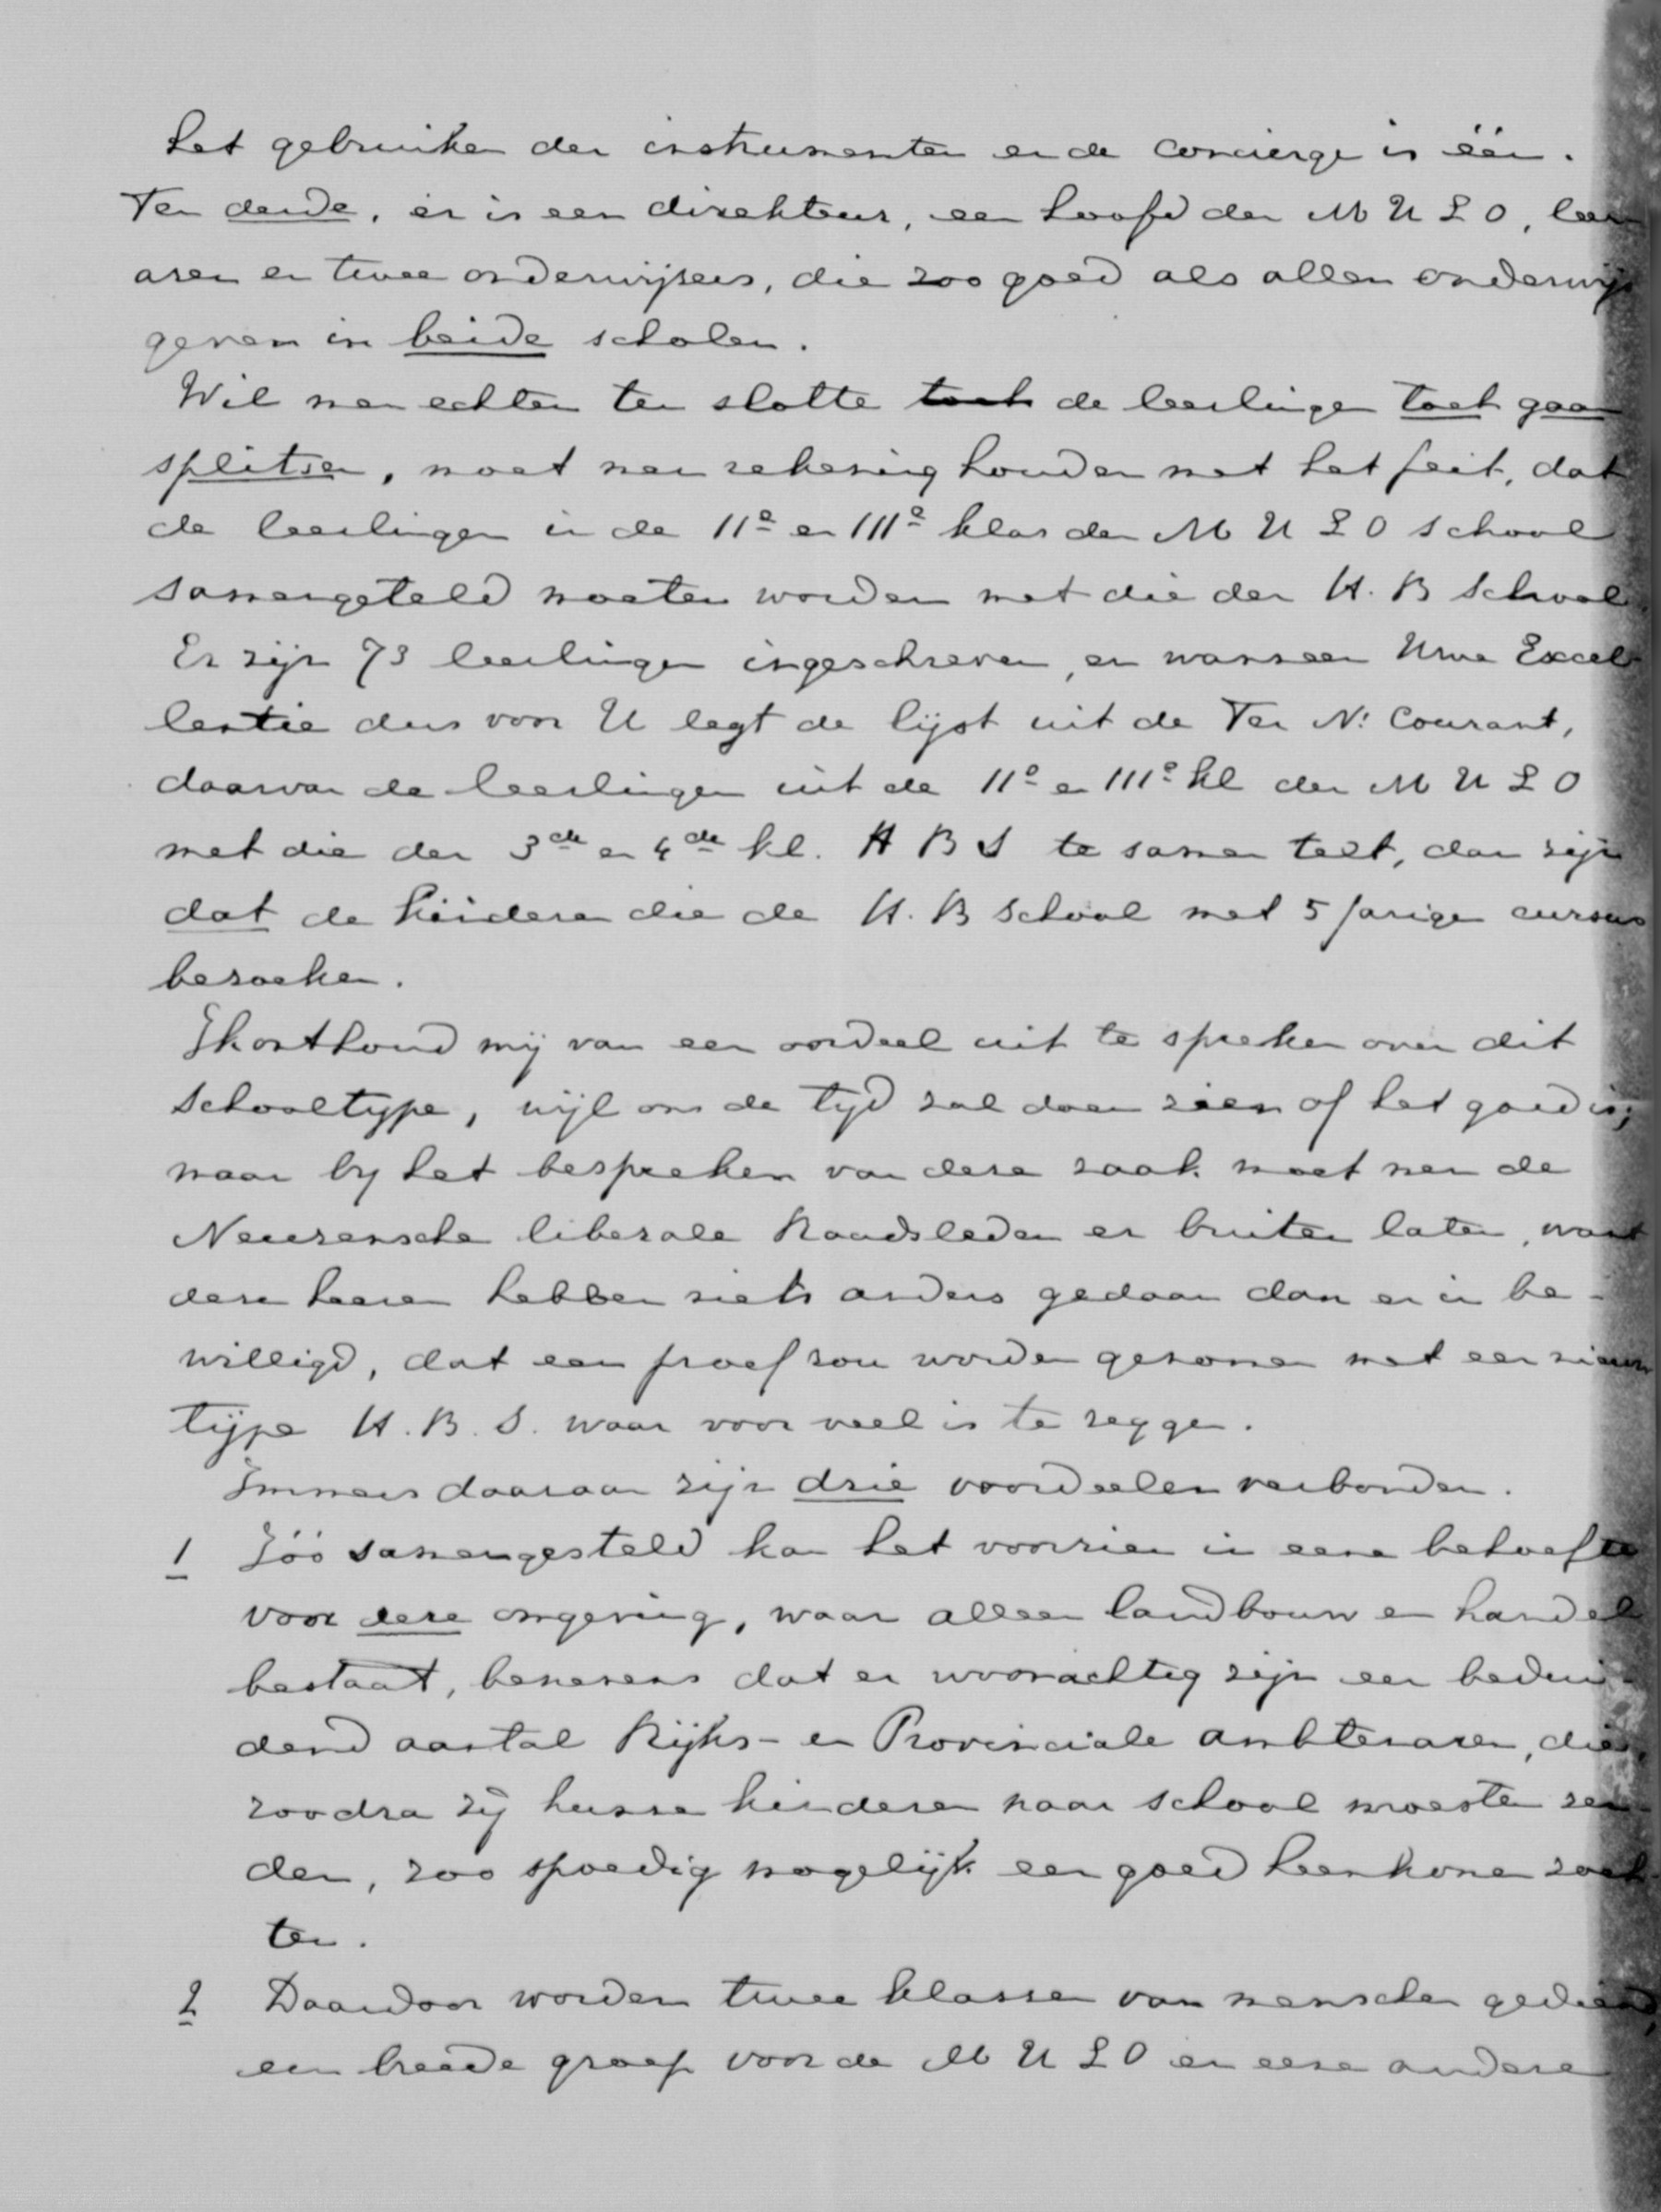 het gebruiken der instrumenten en de concierge is één.
Ten derde, er is een direkteur, een hoofd der M U L O, leer
aren en twee onderwijzers, die zoo goed als allen onderwijs
geven in beide scholen.
Wil men echter ten slotte toch de leerlingen toch gaan
splitsen, moet men rekening houden met het feit, dat
de leerlingen in de IIe en IIIe klas der M U L O school
samengeteld moeten worden met die der H. B School.
Er zijn 73 leerlingen ingeschreven, en wanneer Uwe Excel-
lentie dus voor U legt de lijst uit de Ter N: Courant,
daarvan de leerlingen uit de IIe en IIIe kl der M U L O
met die der 3de en 4de kl. H B S te samen telt, dan zijn
dat de kinderen die de H. B School met 5 jarigen cursus
bezoeken.
Ik onthoud mij van een oordeel uit te spreken over dit
schooltype, wijl ons de tijd zal doen zien of het goed is;
maar by het bespreken van deze zaak moet men de
Neuzensche liberale Raadsleden er buiten laten, want
deze heeren hebben niets anders gedaan dan er in be-
willigd, dat een proef zou worden genomen met een nieuw
type H. B. S. waar voor veel is te zeggen.
Immers daaraan zijn drie voordeelen verbonden.
1 Zóó samengesteld kan het voorzien in eene behoefte
voor deze omgeving, waar alleen landbouw en handel
bestaat, benevens dat er woonachtig zijn een bedui-
dend aantal Rijks- en Provinciale ambtenaren, die,
zoodra zij hunne kinderen naar school moesten zen-
den, zoo spoedig mogelijk een goed heenkomen zoch-
ten.
2 Daardoor worden twee klassen van menschen gediend,
een breede groep voor de M U L O en eene andere